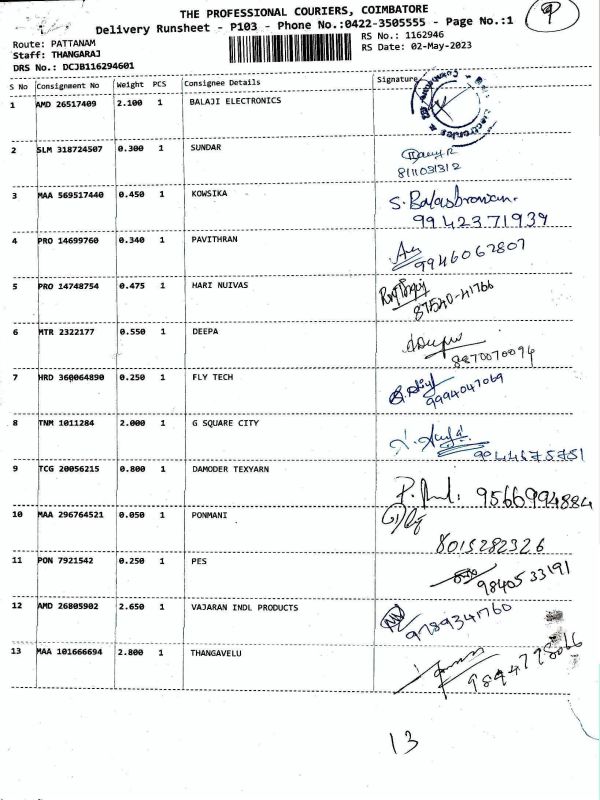 THE PROFESSIONAL COURIERS, COIMBATORE
Delivery Runsheet - P103 - Phone No.:0422-3505555 - Page No.:1
Route: PATTANAM
RS No.: 1162946
Staff: THANGARAJ
RS Date: 02-May-2023
DRS No.: DCJB116294601
S No Consignment No Weight PCS Consignee Details Signature
1 AMD 26517409 2.100 1 BALAJI ELECTRONICS
2 SLM 318724507 0.300 1 SUNDAR
8111031312
3 MAA 569517440 0.450 1 KOWSIKA
9942371939
4 PRO 14699760 0.340 1 PAVITHRAN
9946062807
5 PRO 14748754 0.475 1 HARI NUIVAS
87540-41766
6 MTR 2322177 0.550 1 DEEPA
8870070094
7 HRD 360064890 0.250 1 FLY TECH
9994047069
8 TNM 1011284 2.000 1 G SQUARE CITY
9944675751
9 TCG 20056215 0.800 1 DAMODER TEXYARN
9566994884
10 MAA 296764521 0.050 1 PONMANI
8015282326
11 PON 7921542 0.250 1 PES
9840533191
12 AMD 26805902 2.650 1 VAJARAN INDL PRODUCTS
9789341760
13 MAA 101666694 2.800 1 THANGAVELU
9894798066
13